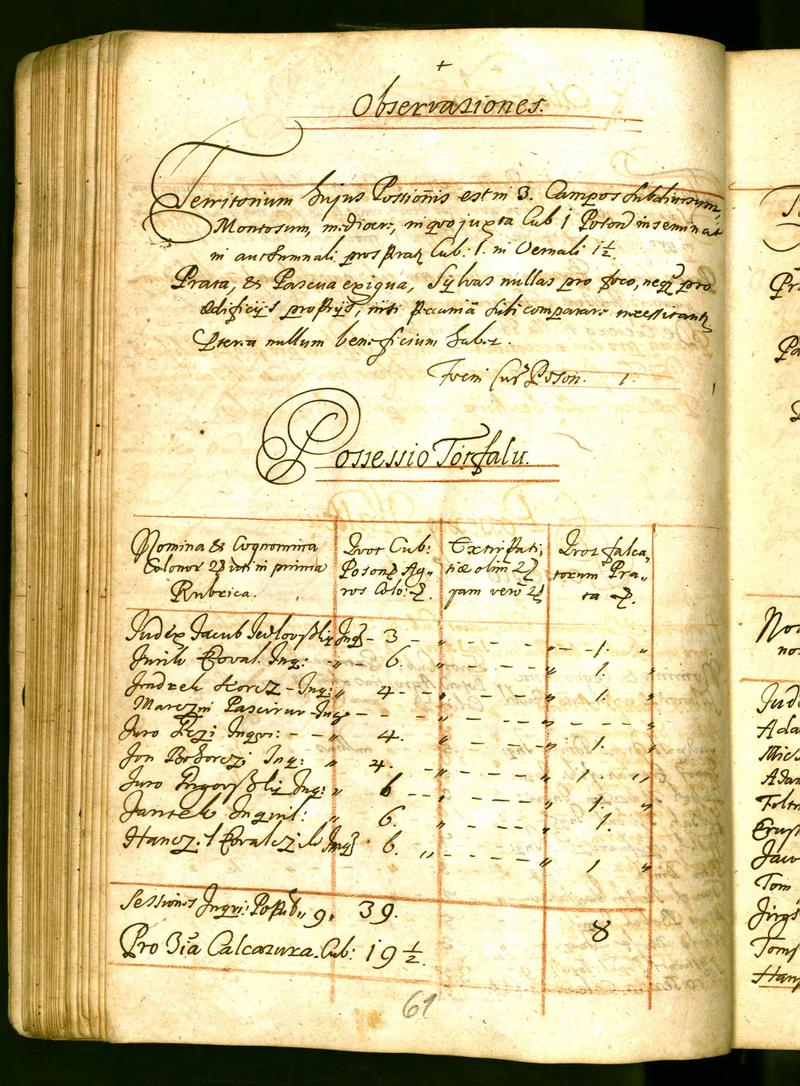 +
Observationes.
Territorium hujus Possionis est in 3. Campos subdivisum,
Montosum, mediocr:, in quo juxta Cub 1 Poson inseminat
in auctumnali prostrat Cub: 1. in Vernali 1½.
Prata, & Pascua exigua, Sylvas nullas pro foco, neq pro
ædificijs proprijs, nisi pecuniâ sibi comparare necessitant
præterea nullum beneficium habet.
Foeni Cur Poson. 1.
Possessio Torfalu.
Nomina & Cognomina Colonor uti in prima Rubrica.
Quot Cub: Poson Agros Colo:
Extirpatitiæ olim jam vero
Quot falcatorum Prata
Judex Jacub Inq - 3 - „ - - - „ - 1. „
Jurik Koval. Inq: „ 6. „ - - - „ 1. „
Jndrek - Inq: „ 4 - „ - - - „ 1. „
Inq - - - „ - - - „ - - - „
Juro Inqu: - - „ 4. „ - - - „ 1. „
Jon Inq: „ 4. „ - - - „ 1 „
Juro Inq: „ 6 - „ - - - „ 1. „
Jantek Inquil: „ 6. „ - - - „ 1. „
Kovalczik Inq 6. „ - - - „ 1 „
Sessiones Inqu: Popul „ 9 „ 39. 8
Pro 3tia Calcatura. Cub: 19½.
61